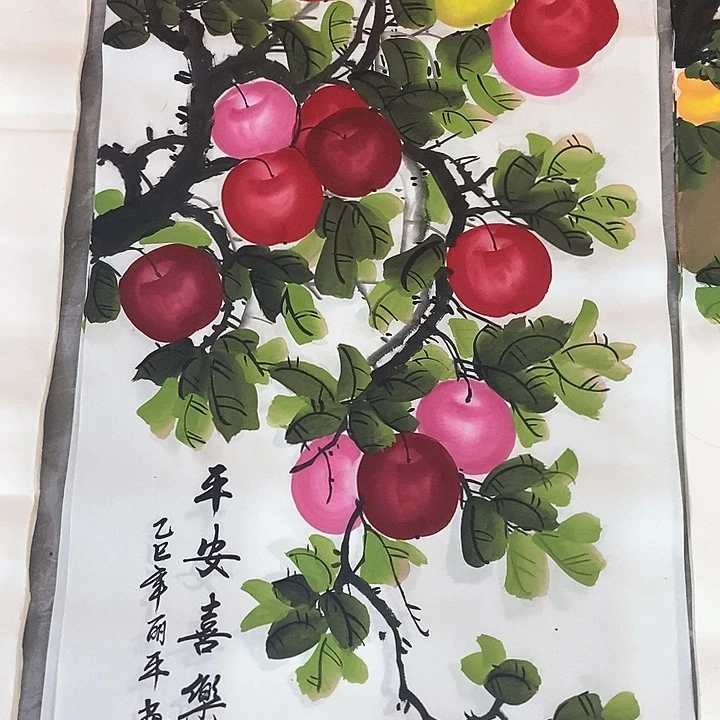 平安喜樂
乙巳年丽平